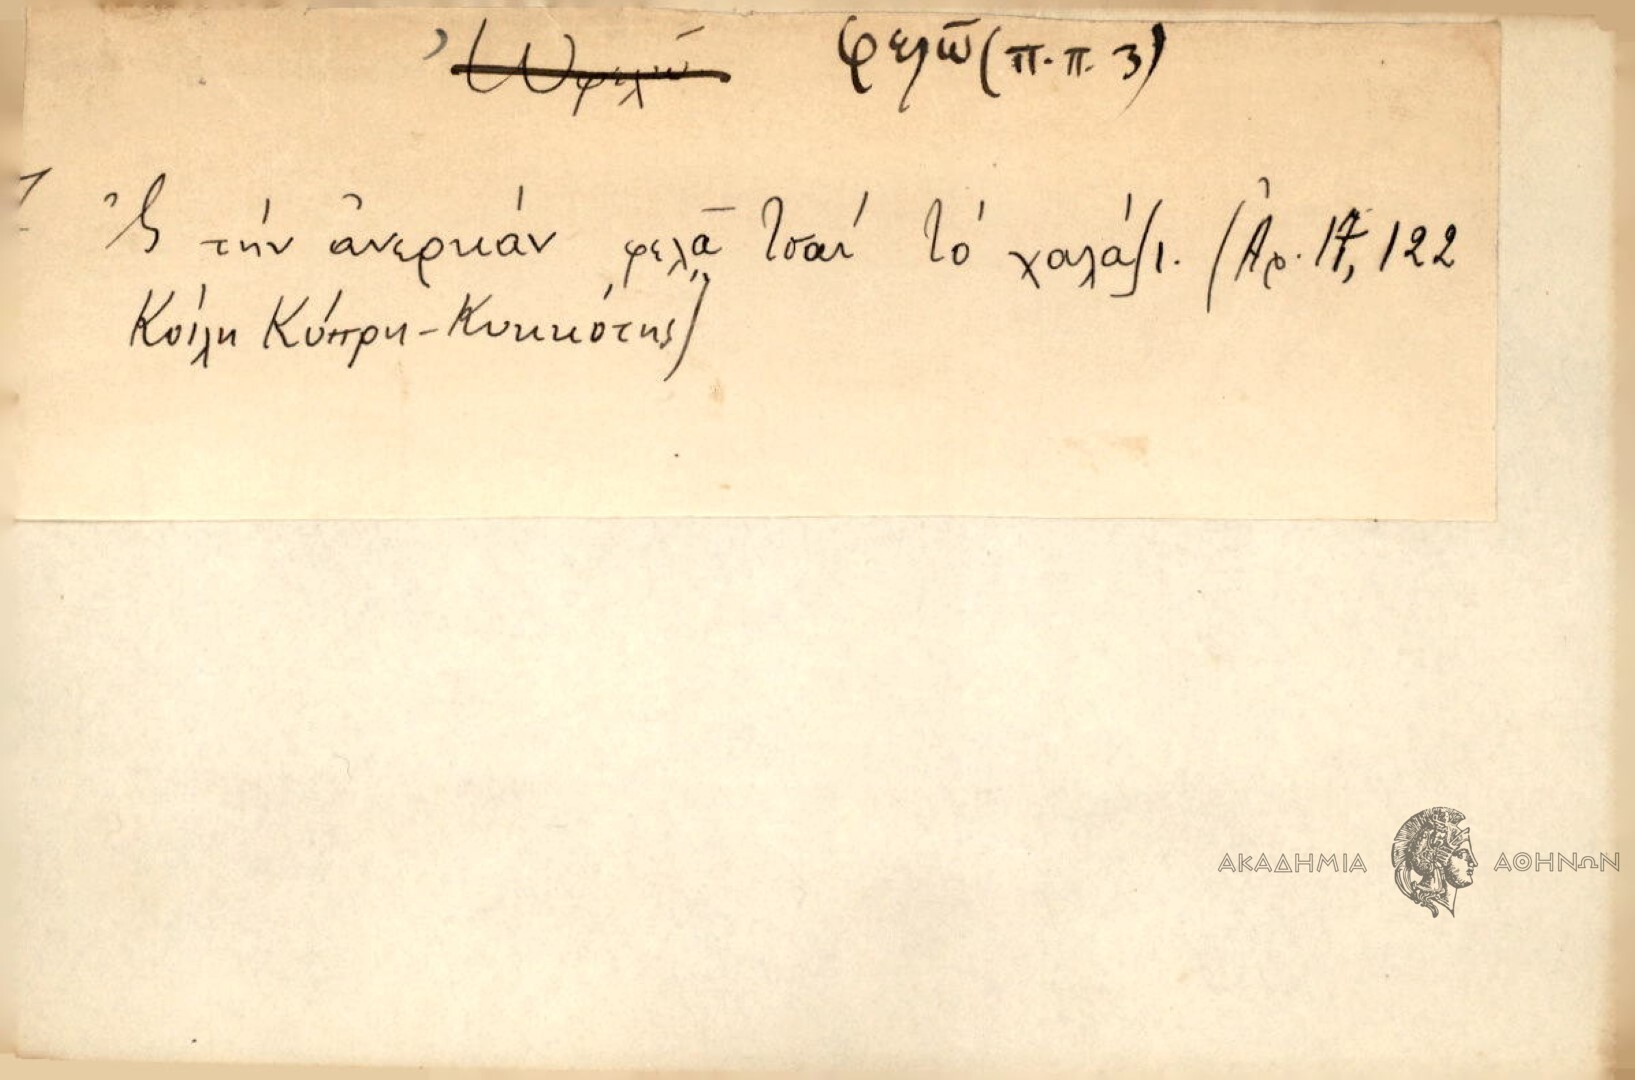 Ὠφελῶ φελῶ (π.π. 3)
Σ τὴν ἀνερκάν φελᾶ τσαί τό χαλάζι. (Ἀρ. 17, 122
Κοίλη Κύπρου - Κυκκώτης)
ΑΚΑΔΗΜΙΑ ΑΘΗΝΩΝ